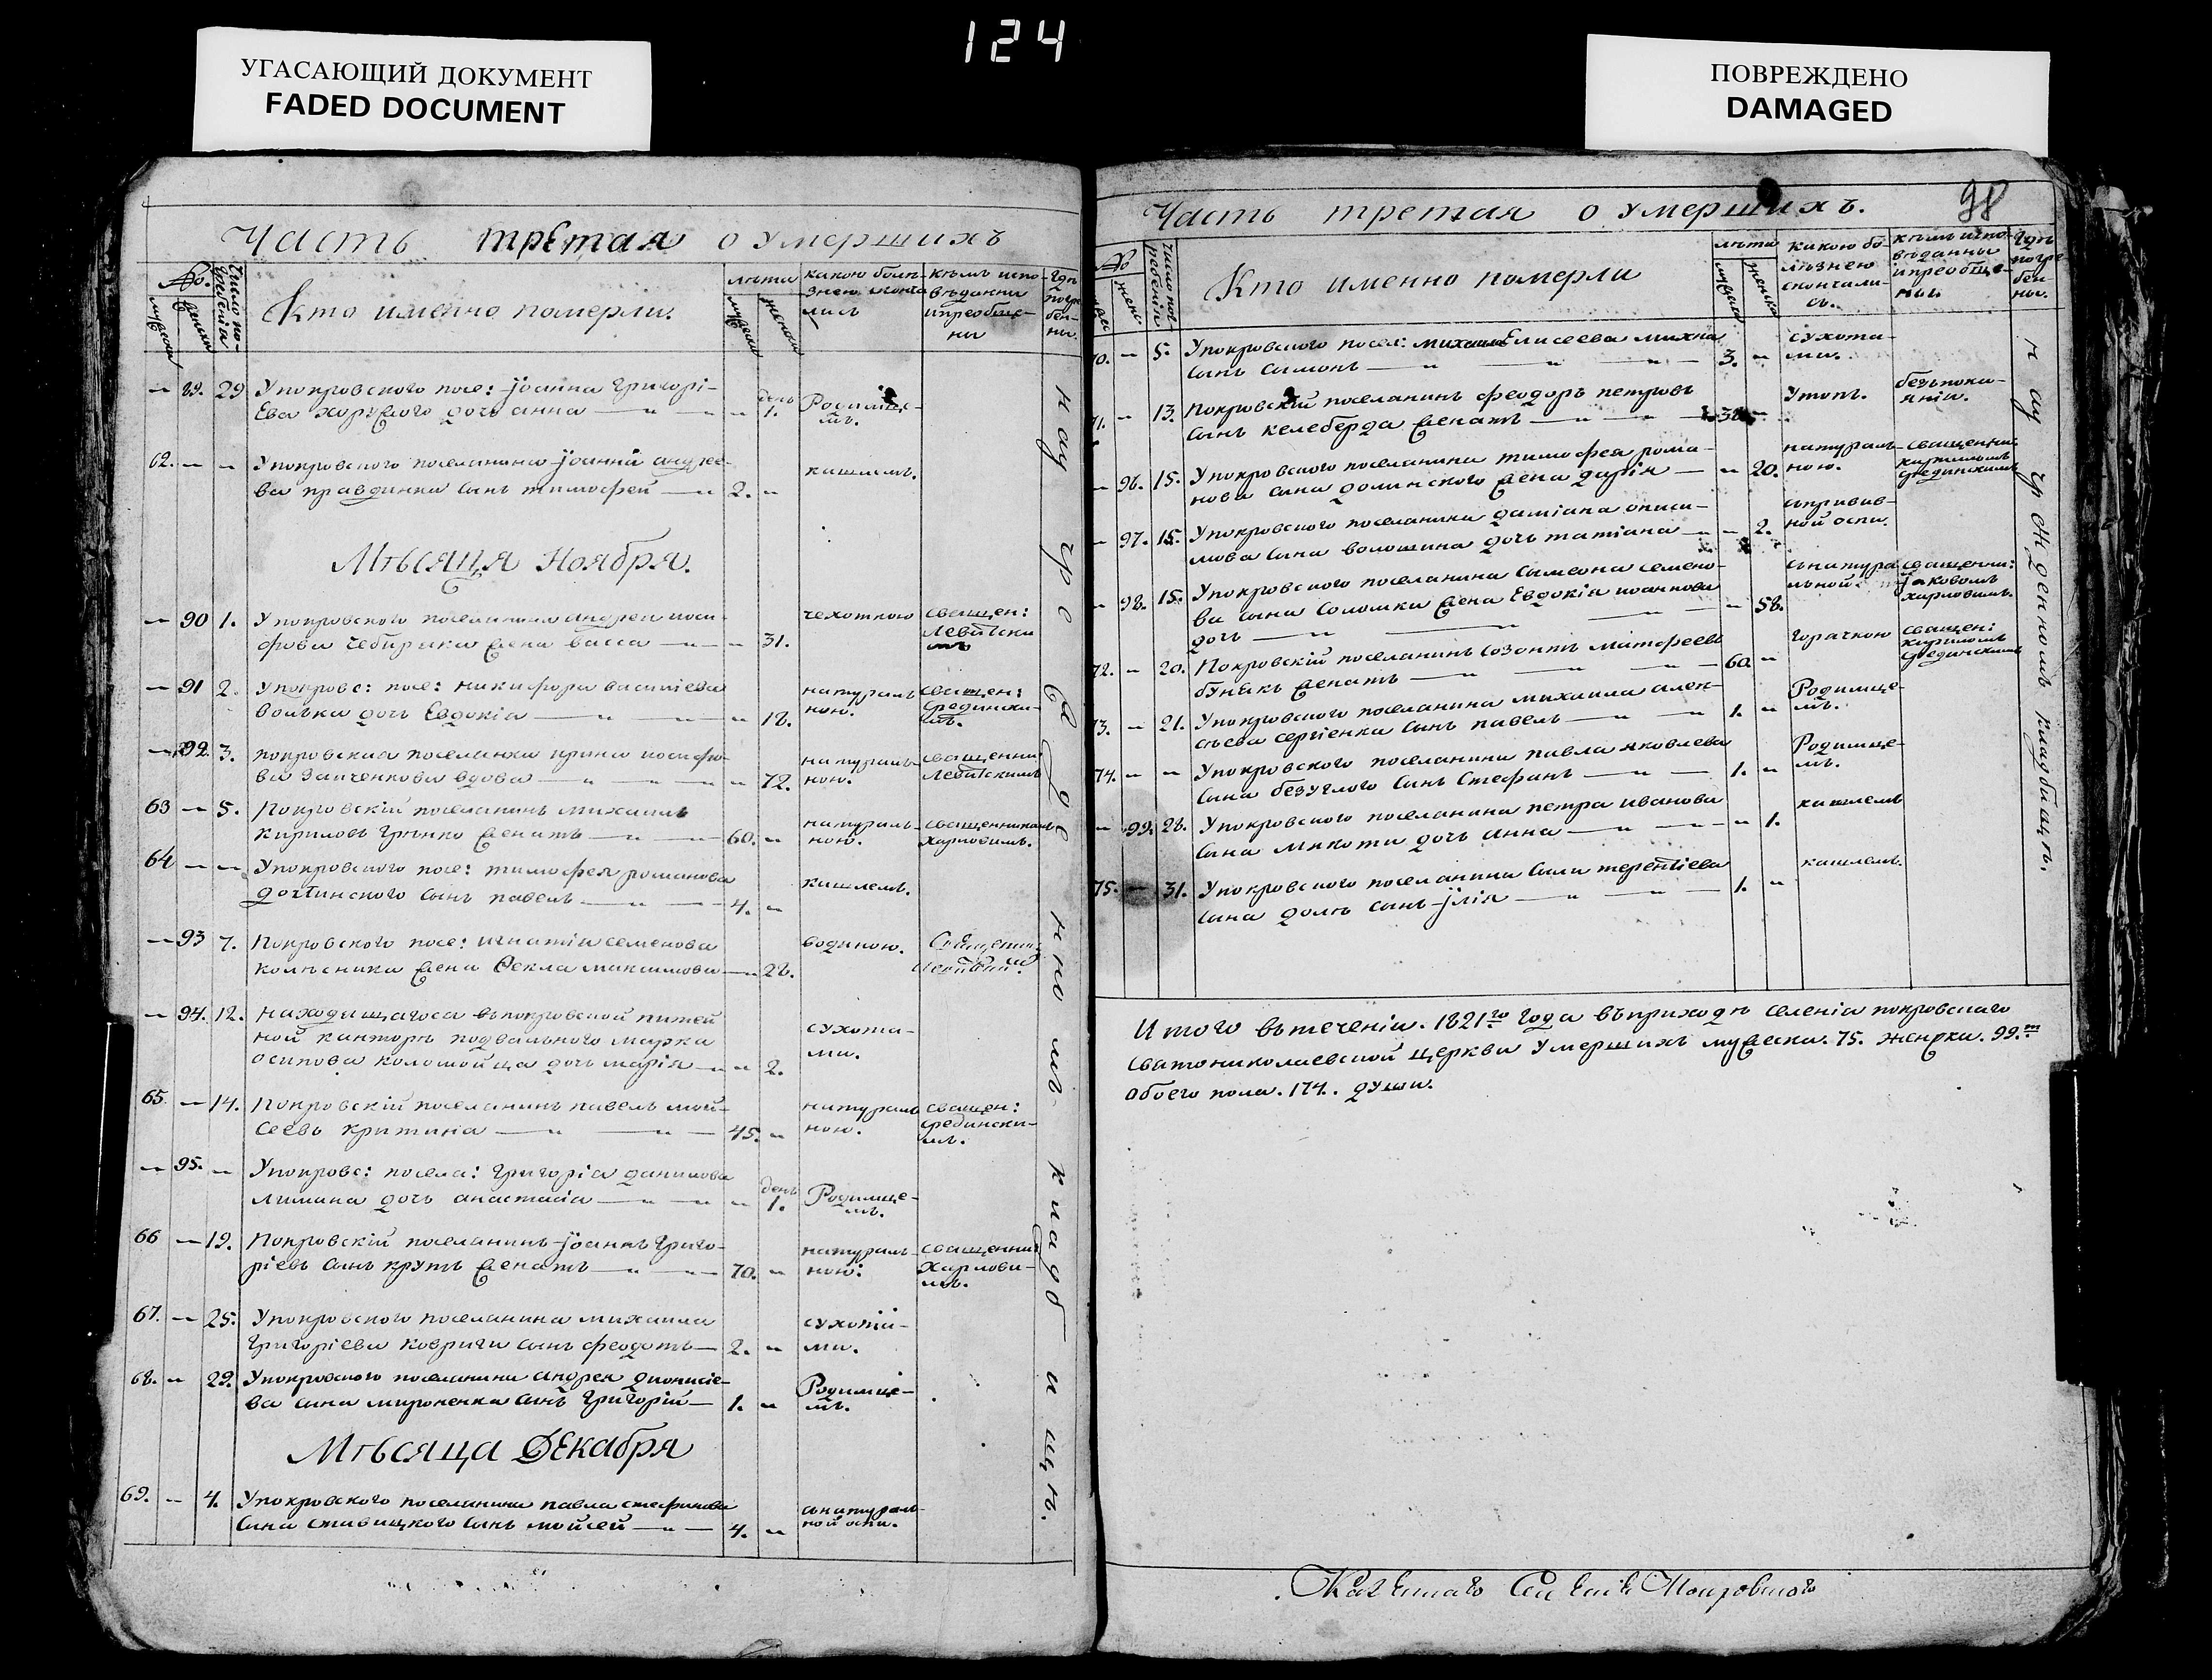 124
УГАСАЮЩИЙ ДОКУМЕНТ
FADED DOCUMENT
ПОВРЕЖДЕНО
DAMAGED
Часть третая о умершихъ
№.
мужеска
женска
Число погребенія
Кто именно померли.
лѣта
мужеска
женска
какою болѣ-
знею
кѣмъ испо-
вѣданни
и преобще-
ни
Гдѣ
погре
бен-
ны.
— 89. 29 У покровского посе: Іоанна Григорі-
ева дочь анна — день 1. Родимце-
мъ.
62. — — У покровского поселянина Іоанна андрее-
ва правдинка сынъ тимофей — 2. — кашлемъ.
Мѣсяця Ноября.
— 90 1. У покровского поселянина андрея иоси-
фова Чебирика жена васса — 31. чехоткою свящ:
Левитски
мъ
— 91 2. У покровс: посе: никифора василіева
волика дочь Евдокія — 18. натураль
ною. свящ:
Средински-
мъ.
— 92. 3. покровская поселянка ирина иосифо-
ва Заиченкова вдова — 72. натураль-
ною. священни:
Левитскимъ
63 — 5. Покровскій поселянинъ михаилъ
кириловъ Гринко женатъ — 60. — натураль-
ною. священникомъ
Харловимъ.
64 — — У покровского посе: тимофея романова
долинского сынъ павелъ — 4. — кашлемъ.
— 93 7. Покровского посе: игнатія семенова
колѣсника жена Фекла максимова — 28. водяною.
— 94. 12. находящагося въ покровской питей
ной канторѣ подвального марка
осипова коломойца дочь марія — 2. сухота-
ми.
65 — 14. Покровскій поселянинъ павелъ мой-
сеевъ критина — 45. — натураль
ною. свящ:
Средински-
мъ.
— 95. — У покровс: посела: Григорія данилова
лимана дочь анастасія — день 1. Родимце-
мъ.
66 — 19. Покровскій поселянинъ Іоаннъ Григо-
ріевъ сынъ крутъ женатъ — 70. — натураль-
ною: священни:
Харлови-
мъ.
67. — 25. У покровского поселянина михаила
Григоріева ковриги сынъ феодотъ — 2. — сухота-
ми.
68. — 29. У покровского поселянина андрея діонисіе-
ва сина мироненка синъ Григорій — 1. — Родимце-
мъ.
Мѣсяца Декабря
69. — 4. У покровского поселянина павла стефанова
сина ставицкого синъ мойсей — 4. — съ натураль-
ной оспи.
на учрежденномъ кладбищѣ.
Часть третая о умершихъ.
98
№
жене
Число погребенія
Кто именно померли
лѣта
мужеска
женска
какою бо-
лѣзнею
скончали-
сь.
кѣмъ испо-
вѣданны
и преобще-
ны.
Гдѣ
погре
бен
ны.
70. — 5. У покровского посел: Елисеева михна
сынъ симонъ — 3. — сухота-
ми.
71. — 13. Покровскій поселянинъ феодоръ петровъ
сынъ келеберда женатъ — 38. — Утопъ. безъ пока-
янія.
— 96. 15. У покровского поселянина тимофея рома-
нова сина долинского жена дарія — 20. натураль-
ною. священни:
кириломъ
Срединскимъ
— 97. 15. У покровского поселянина даміана
сина волошина дочь татіана — 2. съ привив-
ной оспи.
— 98. 15. У покровского поселянина симеона семено-
ва сина Соломки жена Евдокія иоаннова
дочь — 58. съ натура
льной священни:
Іаковомъ
харловимъ.
72. — 20. Покровскій поселянинъ созонтъ матфеевъ
бунякъ женатъ — 60. — горячкою свящ:
кириломъ
Срединскимъ
73. — 21. У покровского поселянина михаила алек-
сѣева сергіенка синъ павелъ — 1. — Родимце-
мъ.
74. — — У покровского поселянина павла яковлева
сина безуглого синъ Стефанъ — 1. — Родимце-
мъ.
— 99. 28. У покровского поселянина петра иванова
сина микоти дочь анна — 1. кашлемъ
75. — 31. У покровского поселянина сили терентіева
сина долѣ синъ Ілія — 1. — кашлемъ.
на учрежденномъ кладбищѣ.
Итого въ теченіи. 1821го года въ приходѣ селенія покровского
святониколаевской церкви умершихъ мужеска. 75. женска. 99.
обоего пола. 174. души.
Покровского